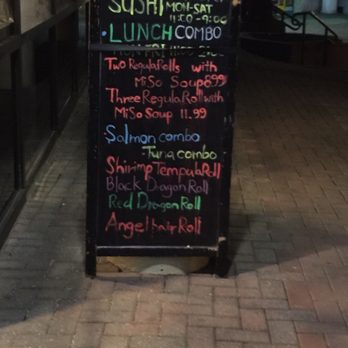 SUSHI MON-SAT
11:00-9:00
·LUNCH COMBO
MON-FRI 11:00
Two Regular Rolls with
MiSo Soup 8.99
Three Regular Roll with
MiSo Soup 11.99
Salmon combo
-Tuna combo
Shirimp Tempula Roll
Black Dragon Roll
Red Dragon Roll
Angel hair Roll